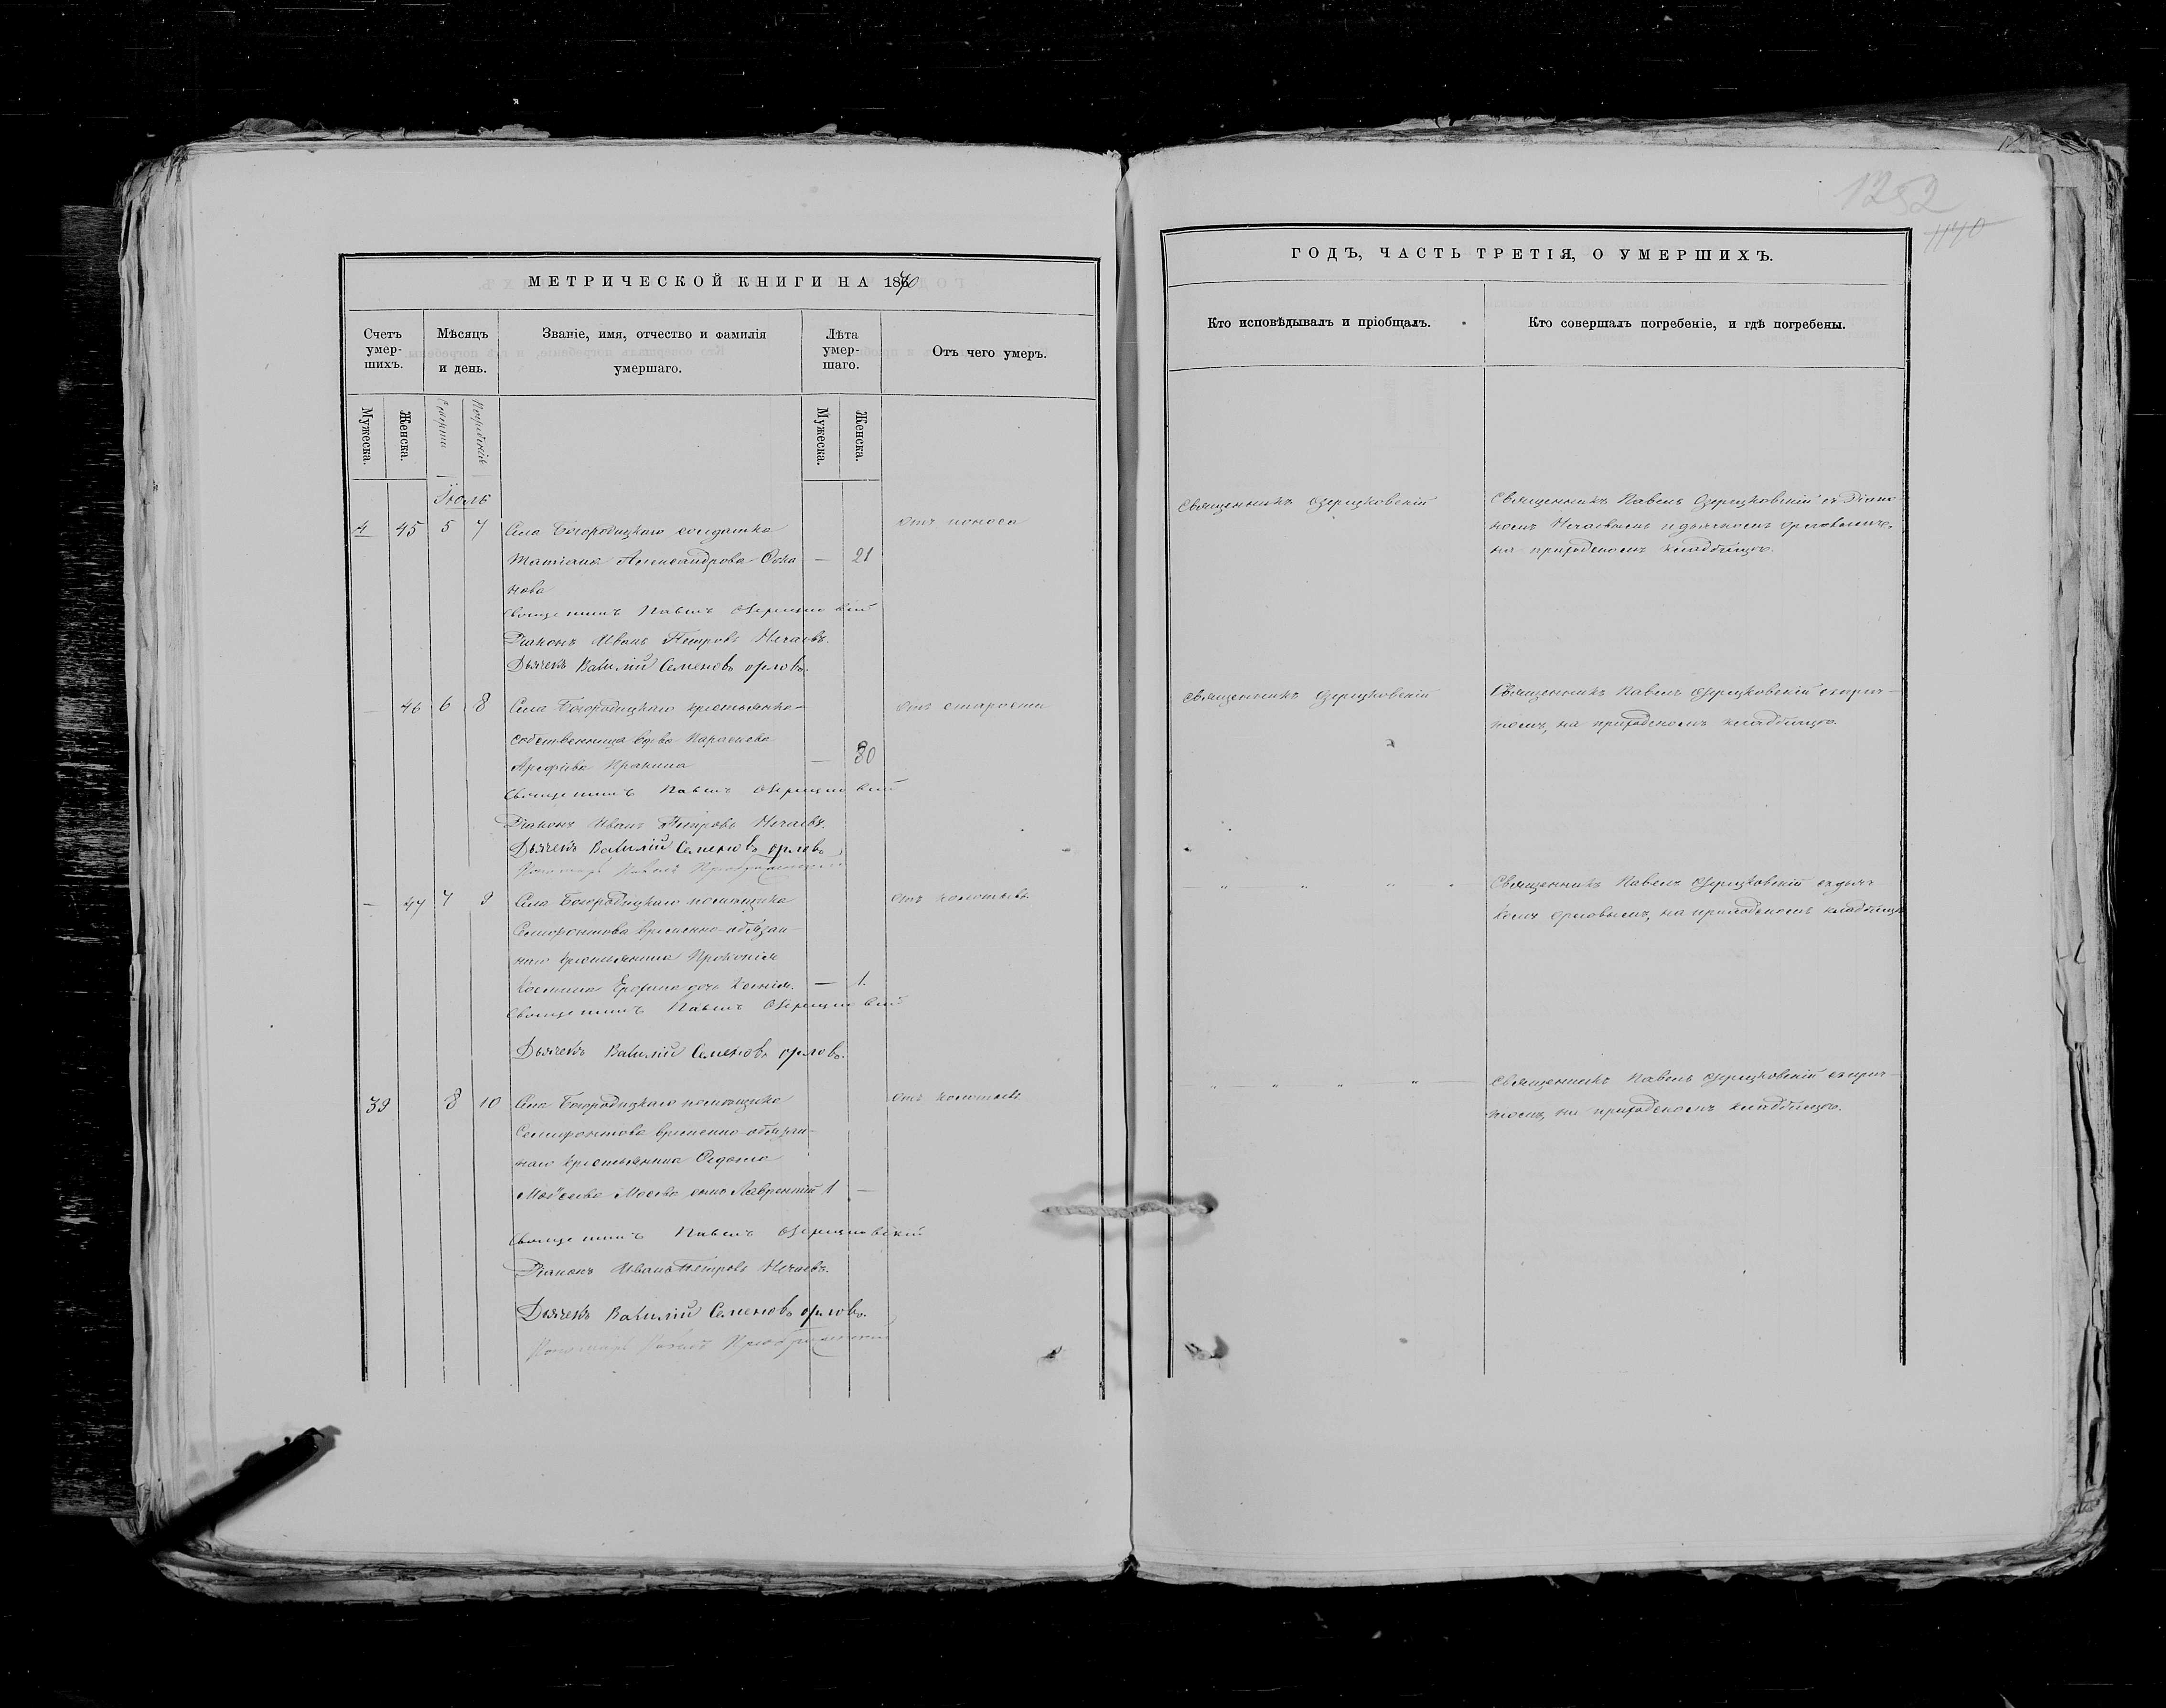 1252
1140
МЕТРИЧЕСКОЙ КНИГИ НА 1870
Счетъ умер-шихъ.
Мѣсяцъ и день.
Званіе, имя, отчество и фамилія умершаго.
Лѣта умер-шаго.
Отъ чего умеръ.
Мужеска.
Женска.
Смерти
Погребенія
Мужеска.
Женска.
Іюль
45 5 7 Села Богородицкаго солдатка отъ поноса
Татіана Александрова — 21
нова
Священникъ Павелъ Озерецковскій
Діаконъ Иванъ Петровъ Нечаевъ.
Дьячекъ Василій Семеновъ Орловъ.
— 46 6 8 Села Богородицкаго крестьянка- отъ старости
собственница вдова Параскева
Арефіева — 80
Священникъ Павелъ Озерецковскій
Діаконъ Иванъ Петровъ Нечаевъ.
Дьячекъ Василій Семеновъ Орловъ
Пономарь Павелъ Преображенскій
— 47 7 9 Села Богородицкаго помѣщика отъ колотья
временно-обязан-
наго крестьянина
дочь Ксенія. — 1.
Священникъ Павелъ Озерецковскій
Дьячекъ Василій Семеновъ Орловъ.
39 8 10 Села Богородицкаго помѣщика отъ колотья
временно-обязан-
наго крестьянина
сынъ Лаврентій 1 —
Священникъ Павелъ Озерецковскій
Діаконъ Иванъ Петровъ Нечаевъ.
Дьячекъ Василій Семеновъ Орловъ.
Пономарь Павелъ Преображенскій
ГОДЪ, ЧАСТЬ ТРЕТІЯ, О УМЕРШИХЪ.
Кто исповѣдывалъ и пріобщалъ.
Кто совершалъ погребеніе, и гдѣ погребены.
Священникъ Озерецковскій
Священникъ Павелъ Озерецковскій съ Діако
номъ Нечаевымъ и дьячкомъ Орловымъ,
на приходскомъ кладбищѣ.
Священникъ Озерецковскій
Священникъ Павелъ Озерецковскій съ прич-
томъ, на приходскомъ кладбищѣ.
— " " " "
Священникъ Павелъ Озерецковскій съ дьяч
комъ Орловымъ, на приходскомъ кладбищѣ
" — " " " —
Священникъ Павелъ Озерецковскій съ прич-
томъ, на приходскомъ кладбищѣ.